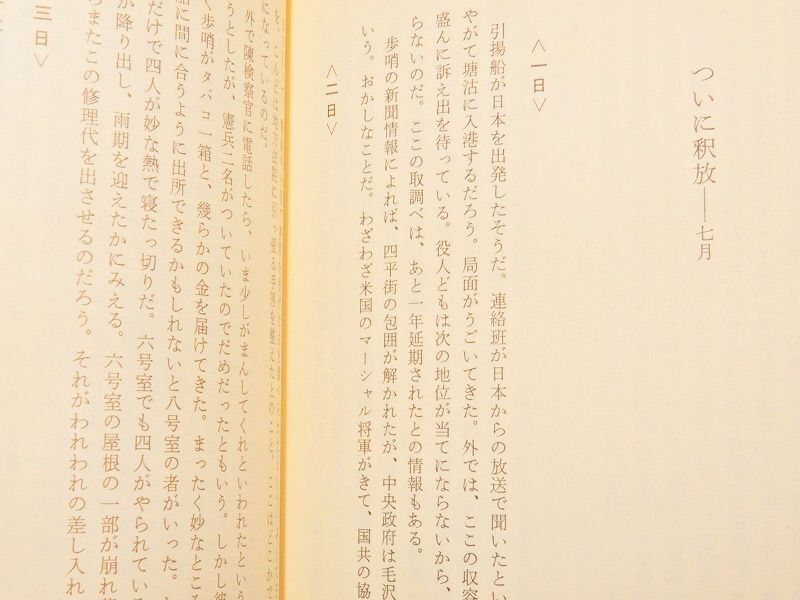 ついに釈放――七月
〈一日〉
引揚船が日本を出発したそうだ。連絡班が日本からの放送で聞いたとい
やがて塘沽に入港するだろう。局面がうごいてきた。外では、ここの収容
盛んに訴え出を待っている。役人どもは次の地位が当てにならないから、
らないのだ。ここの取調べは、あと一年延期されたとの情報もある。
歩哨の新聞情報によれば、四平街の包囲が解かれたが、中央政府は毛沢
いう。おかしなことだ。わざわざ米国のマーシャル将軍がきて、国共の協
〈二日〉
になっているのだ。
外で陳検察官に電話したら、いま少しがまんしてくれといわれたという
うとしたが、憲兵二名がついていたのでだめだったともいう。しかし彼
く歩哨がタバコ一箱と、幾らかの金を届けてきた。まったく妙なところ
船に間に合うように出所できるかもしれないと八号室の者がいった。
だけで四人が妙な熱で寝たっ切りだ。六号室でも四人がやられている
が降り出し、雨期を迎えたかにみえる。六号室の屋根の一部が崩れ
またこの修理代を出させるのだろう。それがわれわれの差し入れ
三日〉